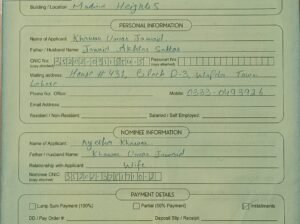 Building / Location: Madina Heights
PERSONAL INFORMATION
Name of Applicant: Khawar Umar Jawaid
Father / Husband Name: Jawaid Akhtar
CNIC No: Passport No:
(copy attached) (copy attached)
Mailing address: House # 431, Block D-3, Wapda Town
Lahore
Phone No: Office: Mobile: 0333-0493926
Email Address:
Resident / Non-Resident: Salaried / Self Employed:
NOMINEE INFORMATION
Name of Applicant: Khawar
Father / Husband Name: Khawar Umar Jawaid
Relationship with Applicant: Wife
Nominee CNIC
(copy attached)
PAYMENT DETAILS
Lump Sum Payment (100%) Partial (50% Payment) Installments
DD / Pay Order #: Deposit Slip / Receipt: